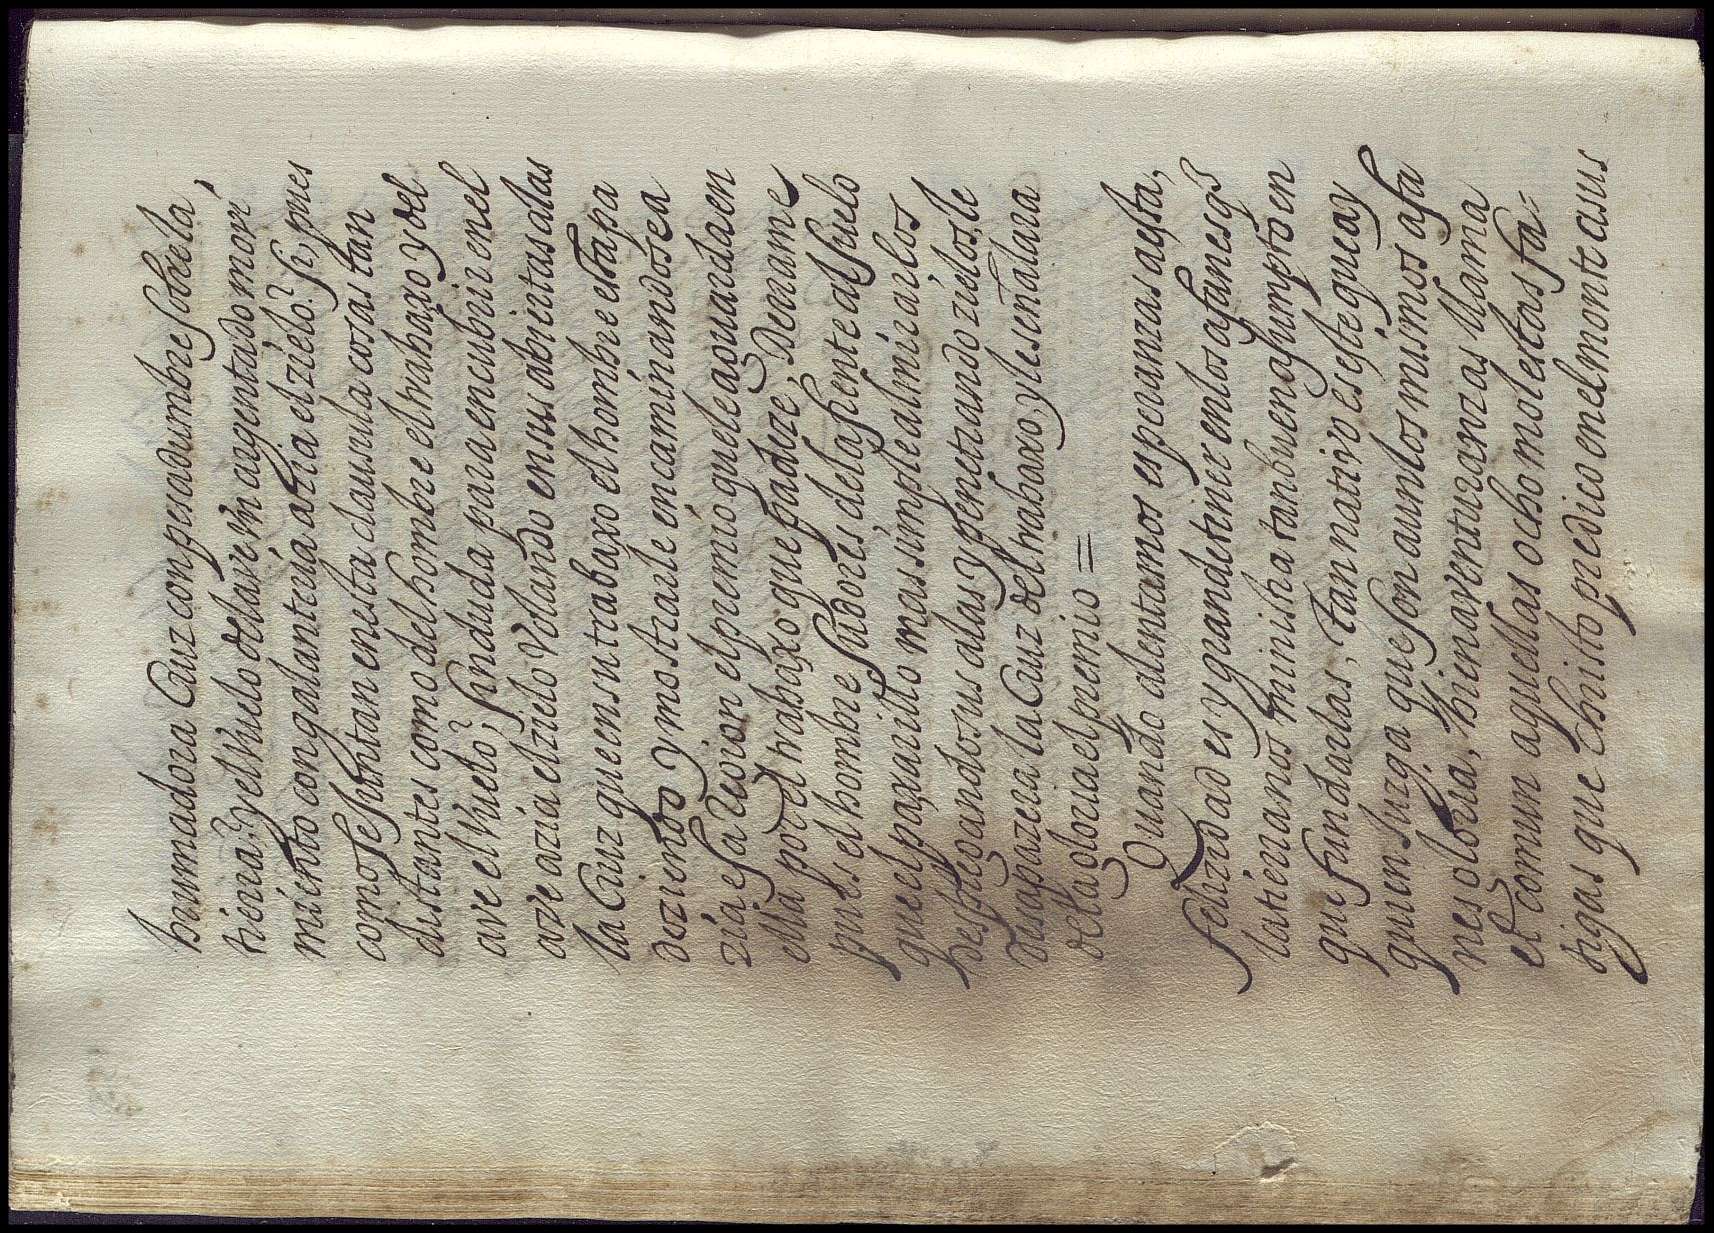 brumadora Cruz con pesadumbre sobre la
tierra? y el vuelo del ave vn argentado mori
miento con galanteria azia el zielo? si, pues
como se juntan en esta clausula cosas tan
distantes como del hombre el trabaxo y del
ave el vuelo? sin duda para encubrir en el
ave azia el zielo volando en sus abiertas alas
la Cruz que en su trabaxo el hombre
deziendo y mostrarle encaminandose a
zia esa Region el premio que le aguarda en
ella por el trabaxo que padeze, Derrame
pues el hombre sudores de la frente al suelo
que el paxarillo mas simple al mirarlos
desplegandosus alas y penetrando zielos, le
desaparezera la Cruz del trabaxo, y le señalara
de la gloria el premio =
Quando alentamos esperanzas a esta,
felizidad es y grande tiner en los afanes q
la tierra nos ministra tan buen asumpto en
que fundarlas, Tan nativo es este que ay
quien juzga que son aun los mismos afa
nes gloria, bienaventuranzas llama
el comun aquellas ocho molestas fa=
tigas que Christo predico en el monte a sus